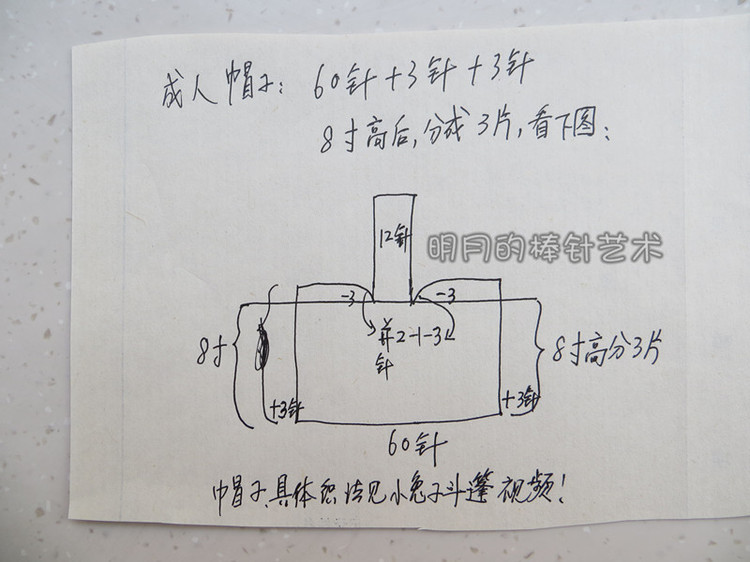 成人帽子：60针+3针+3针
8寸高后，分成3片，看下图：
12针
明月的棒针艺术
-3
-3
8寸
并2-1-3
针
8寸高分3片
+3针
+3针
60针
帽子具体织法见小兔子斗篷视频！